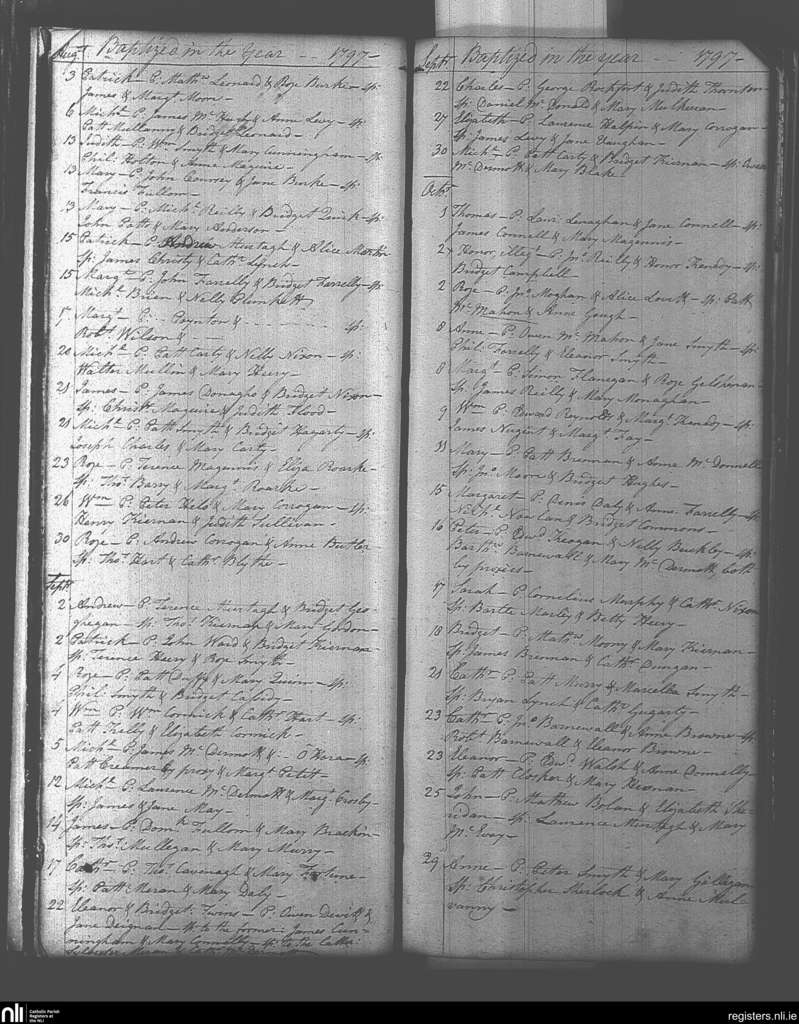 Augt Baptized in the Year -- 1797-
3 Patrick - P. Mathw Leonard & Rose Burke - Sp:
James & Margt Moore -
6 Michl - P. James Mc & Anne Levy - Sp:
Patt & Bridget Leonard -
13 Judith - P. Wm Smyth & Mary Cunningham - Sp:
Phil: Holton & Anne Maguire -
13 Mary - P. John & Jane Burke - Sp:
Francis Fullom -
13 Mary - P. Michl Reilly & Bridget Quirk - Sp:
John Patt & Mary Anderson -
15 Patrick - P. Andrew Murtagh & Alice Martin
Sp: James Christy & Cathe Lynch -
15 Margt - P. John Farrelly & Bridget Farrelly - Sp:
Michl Brien & Nelly Plunkett
7 Margt - P. -- Poynton & - - - - - - Sp:
Robt Wilson & -
20 Michl - P. Patt Carty & Nelly Nixon - Sp:
Walter Mullin & Mary Heery -
21 James - P. James Donagho & Bridget Nixon -
Sp: Christr Maguire & Judith Flood -
21 Michl - P. Patt Smyth & Bridget Hagarty - Sp:
Joseph Charles & Mary Carty -
23 Rose - P. Terence Magennis & Eliza Roarke -
Sp: Thos Barry & Margt Roarke -
26 Wm - P. Peter Helo & Mary Corrogan - Sp:
Henry Kiernan & Judith Sullivan -
30 Rose - P. Andrew Corrogan & Anne Butler
Sp: Thos Hart & Cathe Blythe -
Septr
2 Andrew - P. Terence Murtagh & Bridget Geo-
ghegan - Sp: Thos Kiernan & Mary Gordon -
2 Patrick - P. John Ward & Bridget Kiernan -
Sp: Terence Heery & Rose Smyth -
4 Rose - P. Patt Duffy & Mary Quinn - Sp:
Phil: Smyth & Bridget Cassidy -
4 Wm - P. Wm Cormick & Cathe Hart - Sp:
Patt Kielly & Elizabeth Cormick -
5 Michl - P. James Mc Dermott & -- O'Hara - Sp:
Patt by proxy & Margt Petitt -
12 Michl - P. Laurence Mc Dermott & Margt Crosby -
Sp: James & Jane May -
14 James - P. Domk Fullom & Mary Bracken -
Sp: Thos Mullegan & Mary Murry -
17 Cathe - P. Thos Cavenagh & Mary Fortune -
Sp: Patt Moran & Mary Daly
22 Eleanor & Bridget: Twins - P. Owen Devitt &
Jane Deignan - Sp: to the former: James Cun-
ningham & Mary Connelly - Sp: to the latter:
Moran & Cathe Mc Dermott
Septr Baptized in the year -- 1797-
22 Charles - P. George Rochfort & Judith Thornton
Sp: Daniel Mc Donald & Mary Mulheran -
27 Elizabeth - P. Laurence Halpin & Mary Corrogan -
Sp: James Levy & Jane Vaughan -
30 Michl - P. Patt Carty & Bridget Kiernan - Sp: Owen
Mc Dermott & Mary Blake
Octr
1 Thomas - P. Laur. Lenaghan & Jane Connell - Sp:
James Connell & Mary Magennis -
2 Honor, Illegt - P. Jno Reilly & Honor Kenedy - Sp:
Bridget Campbell
2 Rose - P. Jno Moghan & Alice Lovett - Sp: Patt
Mc Mahon & Anne Gough -
8 Anne - P. Owen Mc Mahon & Jane Smyth - Sp:
Phil: Farrelly & Eleanor Smyth -
8 Margt - P. Simon Flanegan & Rose Gelshenan -
Sp: James Reilly & Mary Monaghan -
9 Wm - P. Edward Reynolds & Margt Kenedy - Sp:
James Nugent & Margt Fay -
11 Mary - P. Patt Brennan & Anne Mc Donnell
Sp: Jno Moore & Bridget Hughes -
15 Margaret - P. Denis Daly & Anne Farrelly - Sp:
Nichs & Bridget Commons -
16 Peter - P. Edwd Keogan & Nelly Buckley - Sp:
Barthw Barnewall & Mary Mc Dermott, both
by proxies -
17 Sarah - P. Cornelius Murphy & Cathe Nixon
Sp: Bartle Marley & Betty Heery -
18 Bridget - P. Mathw Moony & Mary Kiernan -
Sp: James Brennan & Cathe Dungan -
21 Cathe - P. Patt Murry & Marcella Smyth -
Sp: Bryan Lynch & Cathe Gugarty -
23 Cathe - P. Jno Barnewall & Anne Browne - Sp:
Robt Barnewall & Eleanor Browne -
23 Eleanor - P. Edwd Walsh & Anne Donnelly -
Sp: Patt Closker & Mary Keenan -
25 John - P. Mathew Bolan & Elizabeth She-
ridan - Sp: Laurence Murtagh & Mary
Mc Evoy -
29 Anne - P. Peter Smyth & Mary Gillegan
Sp: Christopher Sherlock & Anne Mul-
vanny -
nli
Catholic Parish
Registers at
the NLI
registers.nli.ie